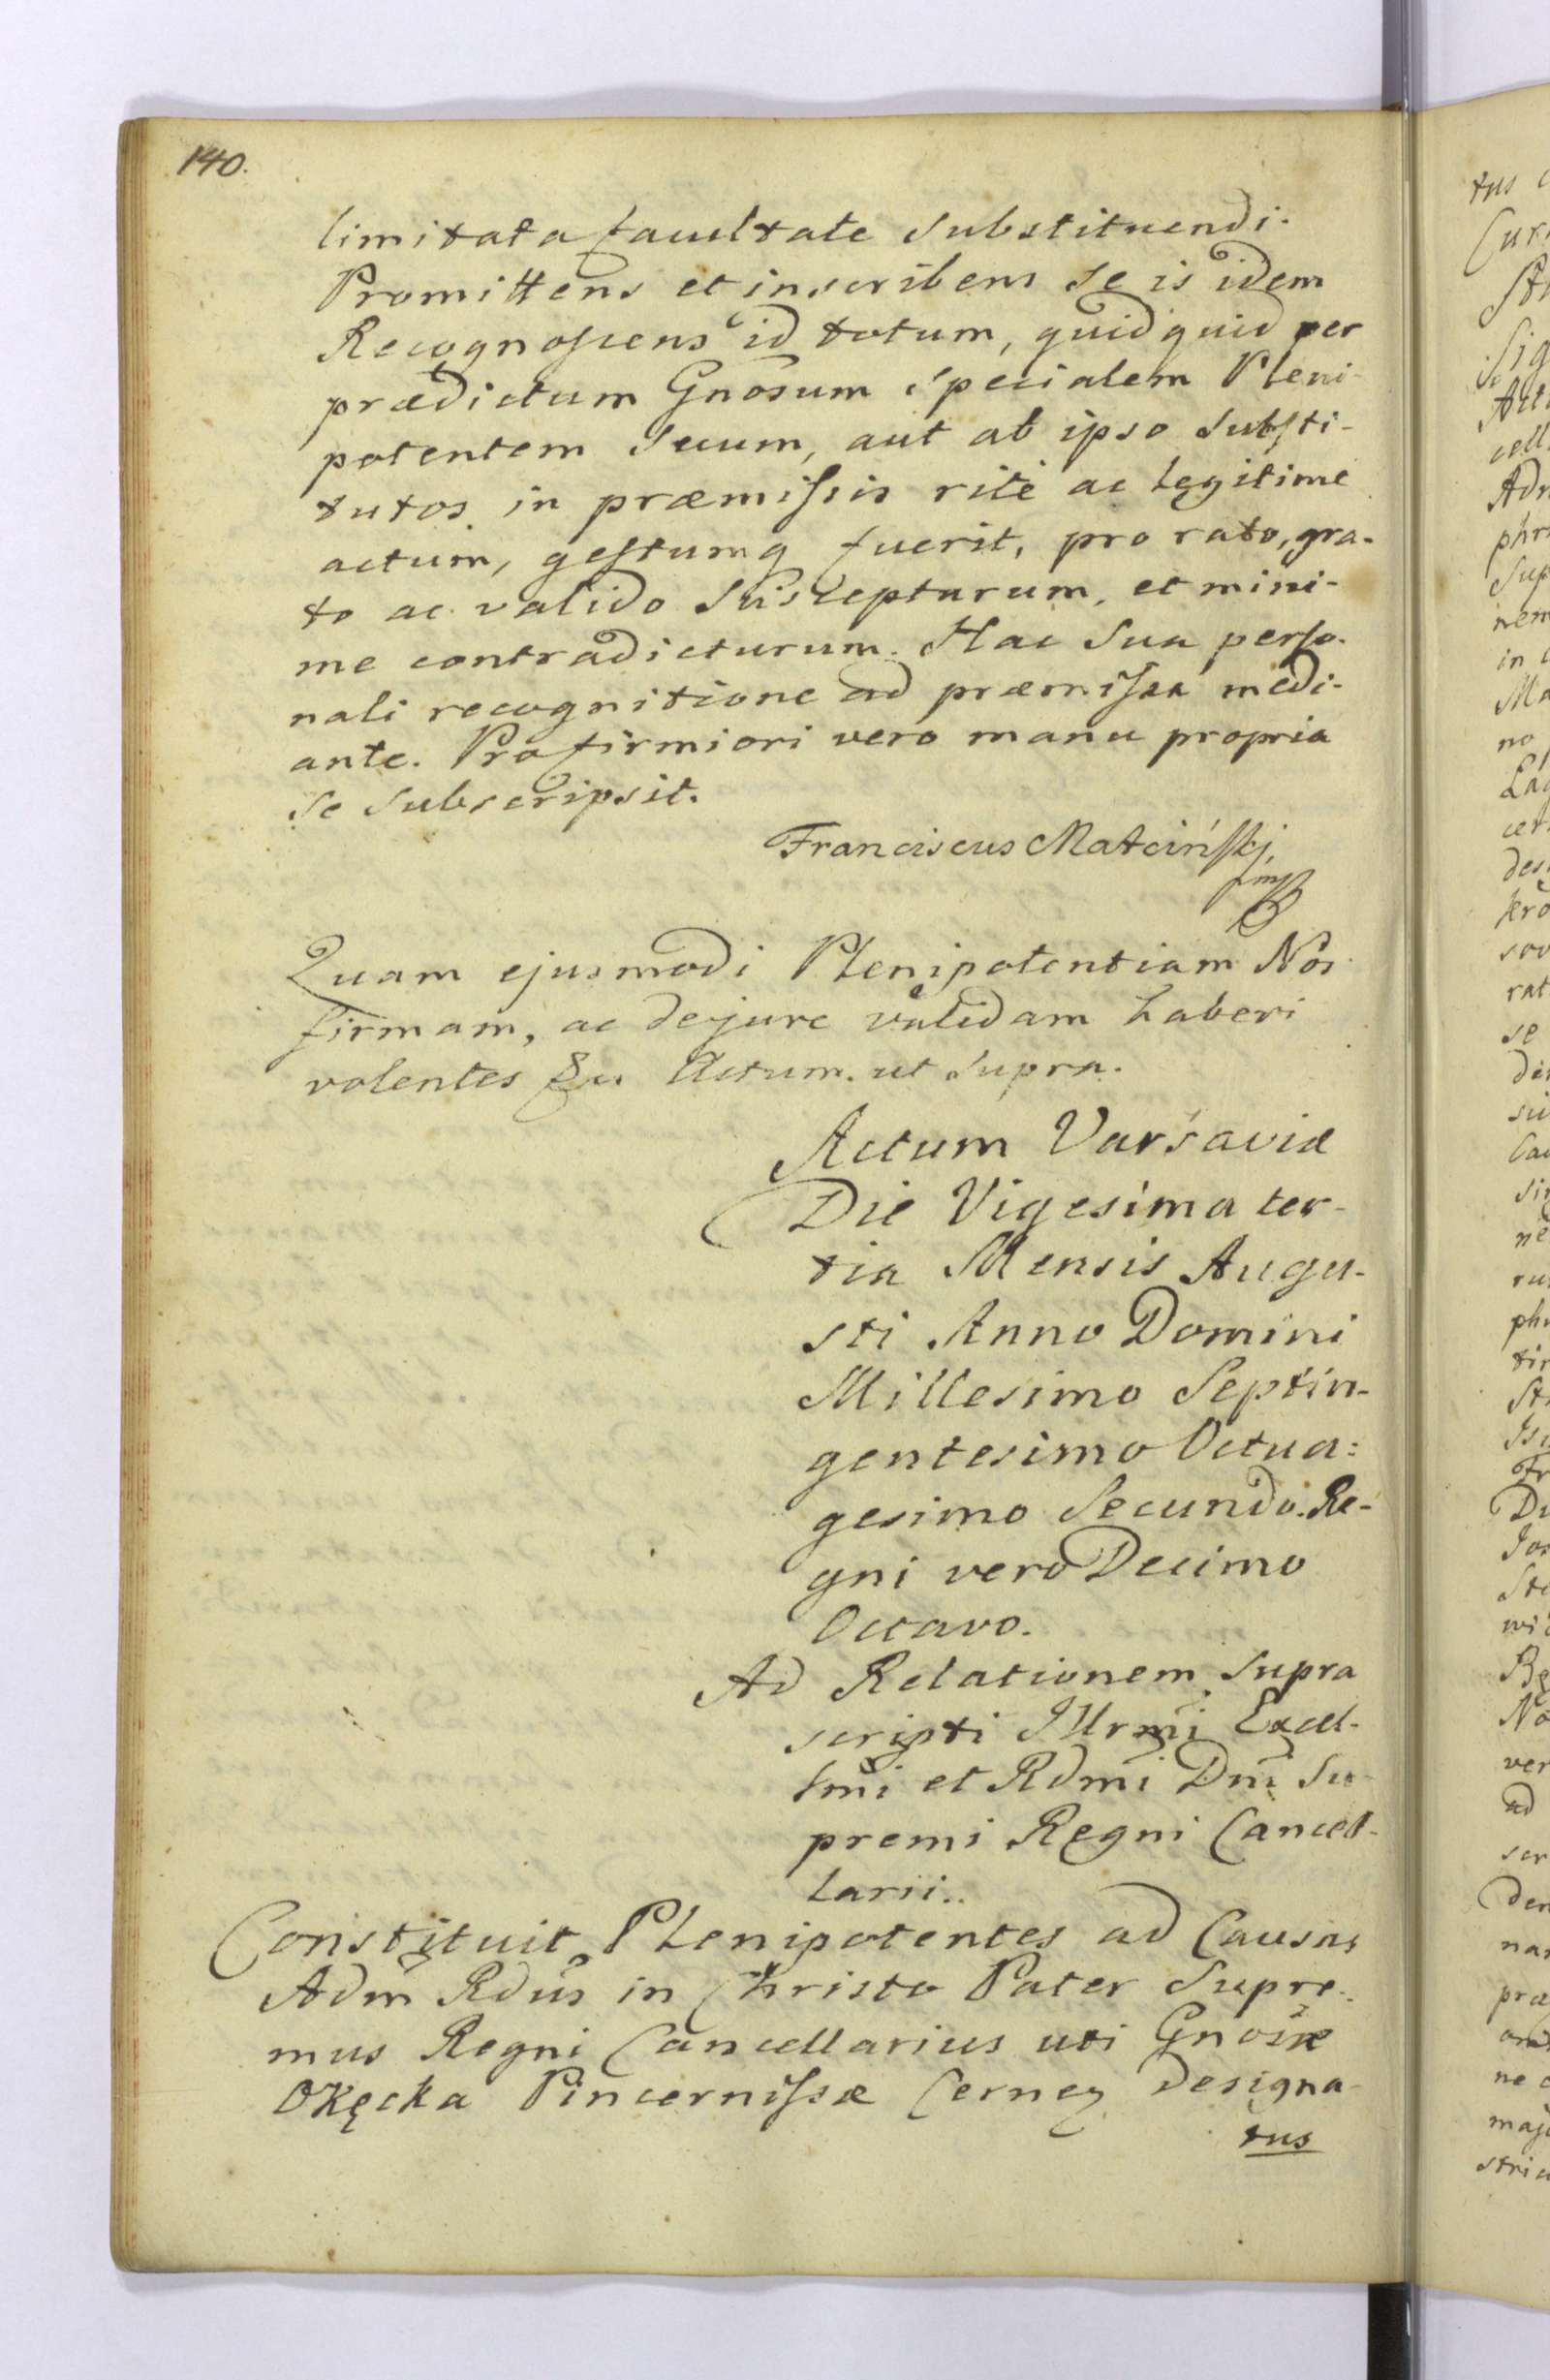 140.
limitata facultate substituendi.
Promittens et inscribens se is idem
Recognoscens id totum, quidquid per
prædictum Gnosum specialem Pleni-
potentem suum, aut ab ipso substi-
tutos in præmissis rite ac legitime
actum, gestumq fuerit, pro rato, gra-
to ac valido suscepturum, et mini-
me contradicturum. Hac sua perso-
nali recognitione ad præmissa medi-
ante. Pro firmiori vero manu propria
se subscripsit.
Franciscus Matciński
mp
Quam ejusmodi Plenipotentiam Nos
firmam, ac dejure validam haberi
volentes Actum ut supra.
Actum Varsaviæ
Die Vigesima ter-
tia Mensis Augu-
sti Anno Domini
Millesimo Septin-
gentesimo Octua:
gesimo Secundo. Re-
gni vero Decimo
Octavo.
Ad Relationem supra
scripti Illrmi Excel-
lmi et Rdmi Dni Su-
premi Regni Cancel-
larii..
Constituit Plenipotentes ad Causas
Adm Rdus in Christo Pater Supre-
mus Regni Cancellarius uti Gnosæ
Okęcka Pincernissæ Cernen Designa-
tus